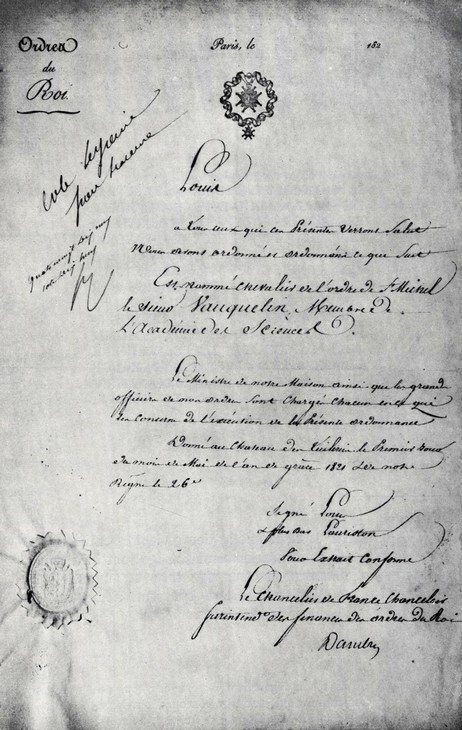 Ordres
du
Roi.
Paris, le 182
Louis
a tous ceux qui ces Présentes Verrons Salut
Nous avons ordonné et ordonnons ce que Suit
Est nommé Chevalier de l'ordre de St Michel
le Sieur Vauquelin, Membre de
L'Academie des Sciences.
Le Ministre de notre Maison ainsi que les grands
officiers de nos ordres sont Chargés Chacun en ce qui
les Concerne de l'exécution de la Présente ordonnance
Donné au Chateau des Tuileries le Premier Jour
du mois de Mai de l'an de grâce 1821 & de notre
Règne le 26e
Signé Louis
& plus bas Lauriston
Pour Extrait Conforme
Le Chancelier de France Chancelier
Surintendt des finances des ordres du Roi
Dambray